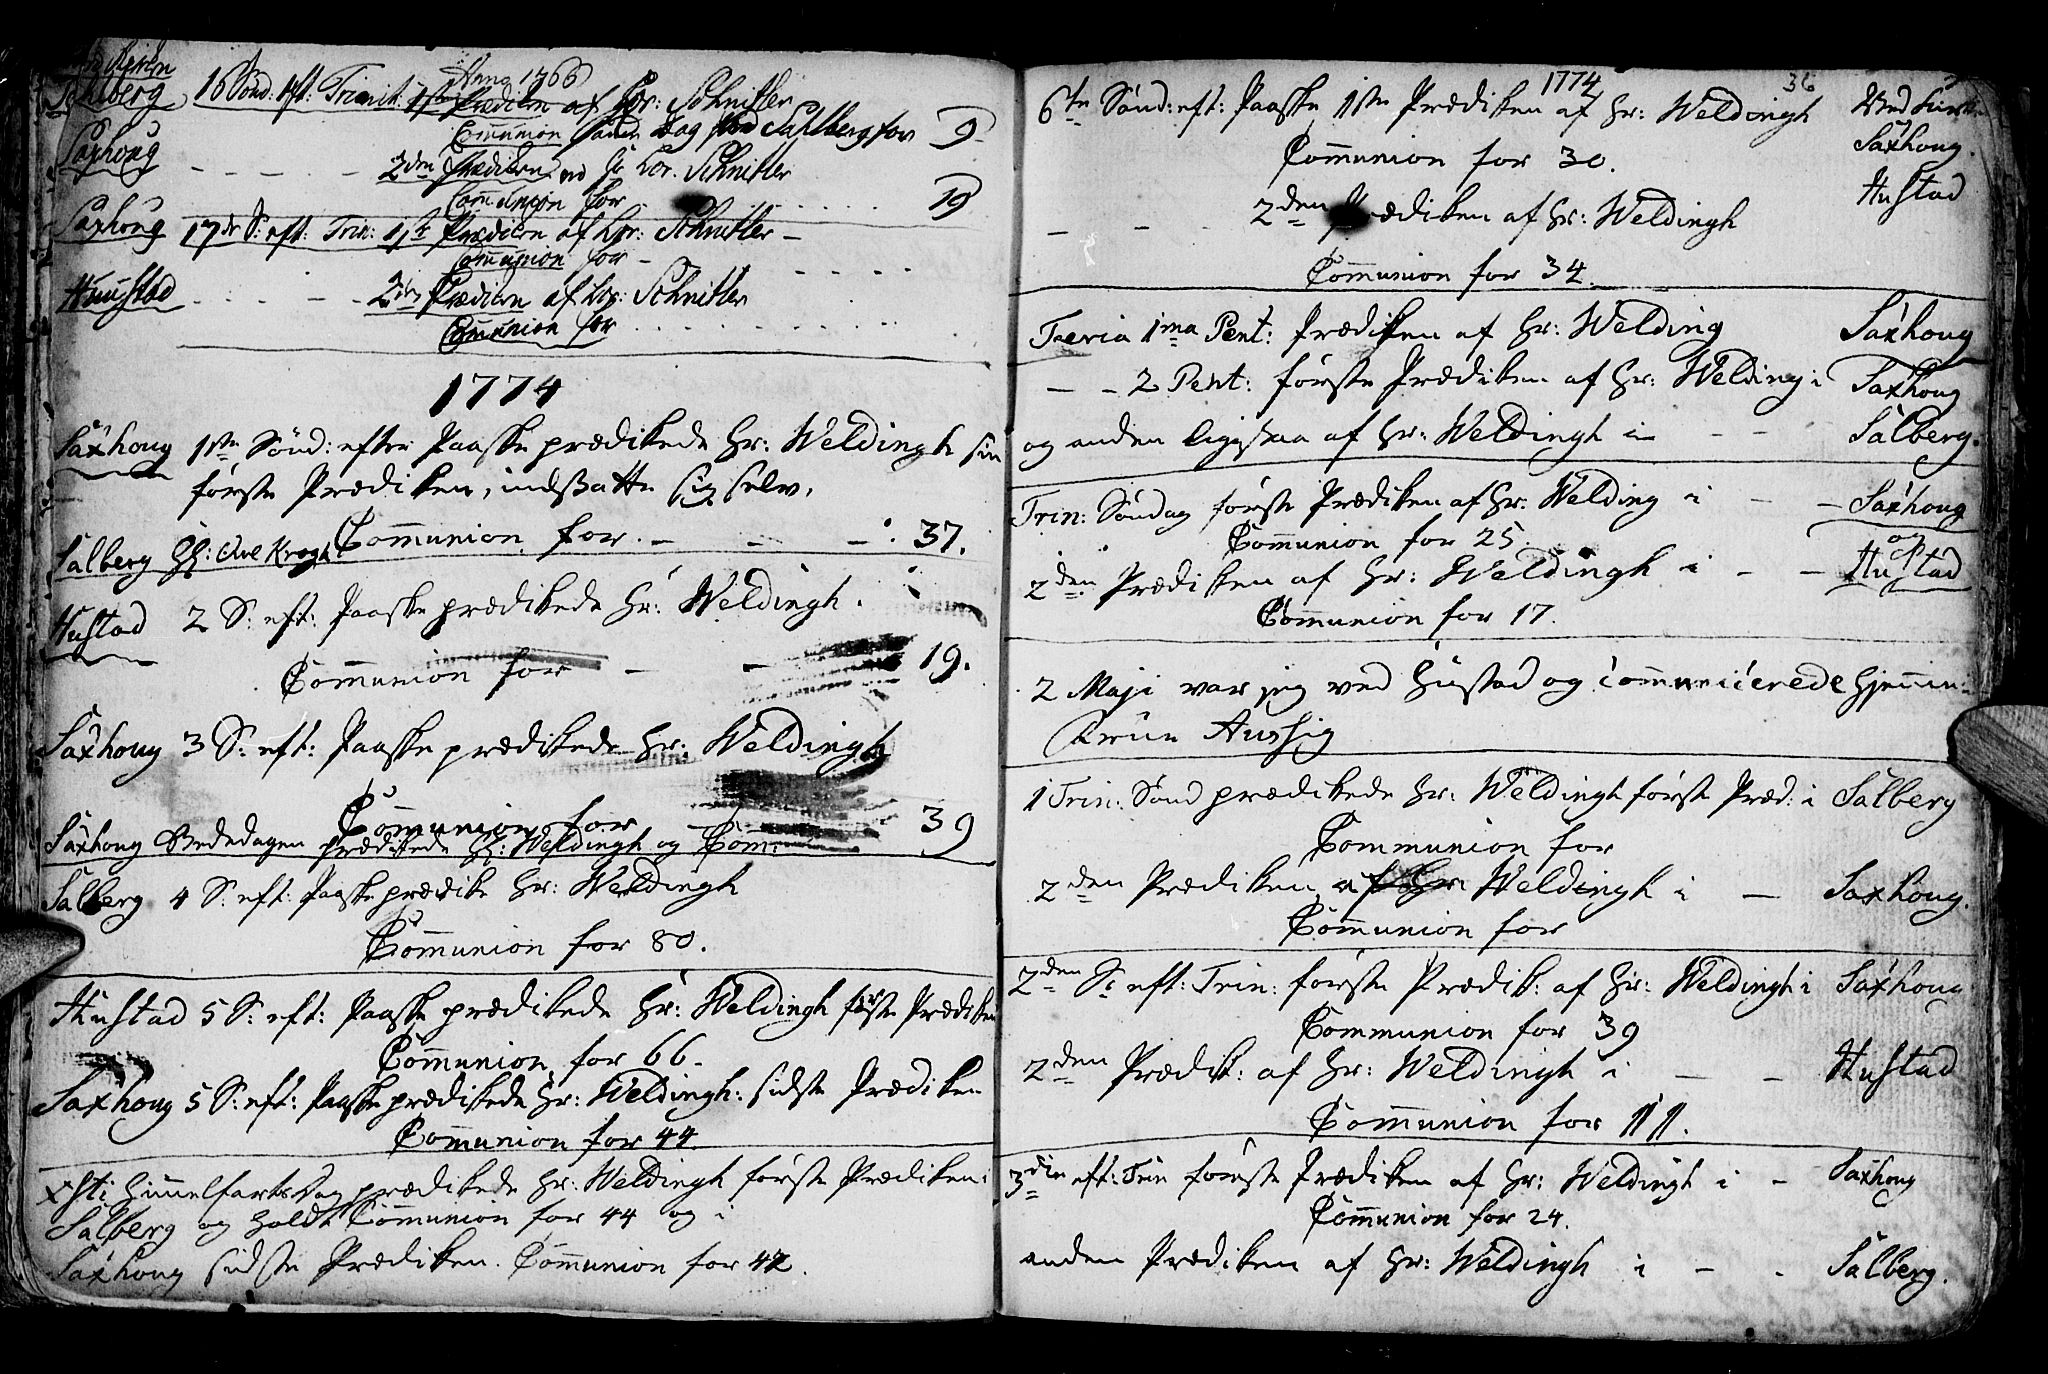 Anno 1766
Sahlberg 16 Sönd: eft: Trinit: 1ste Prædiken af Hr: Schnitler
Communion samme Dag ved Sahlberg for 9
Saxhoug - - - - 2den Prædiken ved Hr. Schnitler
Communion for . . . . . . 19
Saxhoug 17de S: eft: Trin: 1ste Prædiken af Hr: Schnitler -
Communion for - . . . .
Huustad . . . - - 2den Prædiken af Hr: Schnitler
Communion for . . . . . .
1774
Saxhoug 1ste Sönd: efter Paaske prædikede Hr: Weldingh sin
första Prædiken, indsatte sig selv,
Communion for . - - - . 37.
Salberg Hr: Ove Krogh
Hustad 2 S: eft: Paaske prædikede Hr: Weldingh .
Communion for - - 19.
Saxhoug 3 S: eft: Paaske prædikede Hr: Weldingh
Communion for - 39
Saxhoug Bededagen prædikede Hr: Weldingh og Com:
Salberg 4 S: eft: Paaske prædike Hr: Weldingh
Communion for 80.
Hustad 5 S: eft: Paaske prædikede Hr: Weldingh første Prædiken
Communion for 66.
Saxhoug 5 S: eft: Paaske prædikede Hr: Weldingh: sidste Prædiken
Communion for 44.
Xsti Himmelfarts Dag prædikede Hr: Weldingh første Prædiken i
Salberg og holdt Communion for 44 og i
Saxhoug sidste Prædiken. Communion for 42.
1774 36
6te Sönd: eft: Paaske 1ste Prædiken af Hr: Weldingh Saxhoug.
Communion for 30.
- - - 2den Prædiken af Hr: Weldingh Hustad
Communion for 34.
Faeria 1ma Pent: Prædiken af Hr: Welding Saxhoug
- - 2 Pent: første Prædiken af Hr: Welding i Saxhoug
og anden ligesaa af Hr: Weldingh i - - Salberg.
Trin: Söndag første Prædiken af Hr: Welding i - - Saxhoug
Communion for 25. og
2den Prædiken af Hr: Weldingh i - - Hustad
Communion for 17.
2 Maji var jeg ved Hustad og communicerede hjemme
1 Trin: Sönd prædikede Hr: Weldingh første Præd: i Salberg
Communion for
2den Prædiken af Hr: Weldingh i - Saxhoug.
Communion for
2den S: eft: Trin: første Prædik: af Hr: Weldingh i Saxhoug
Communion for 39
2den Prædik: af Hr: Weldingh i - - Hustad
Communion for 11.
3die eft: Trin første Prædiken af Hr: Weldingh i - Saxhoug
Communion for 24.
anden Prædiken af Hr: Weldingh i - - Salberg.